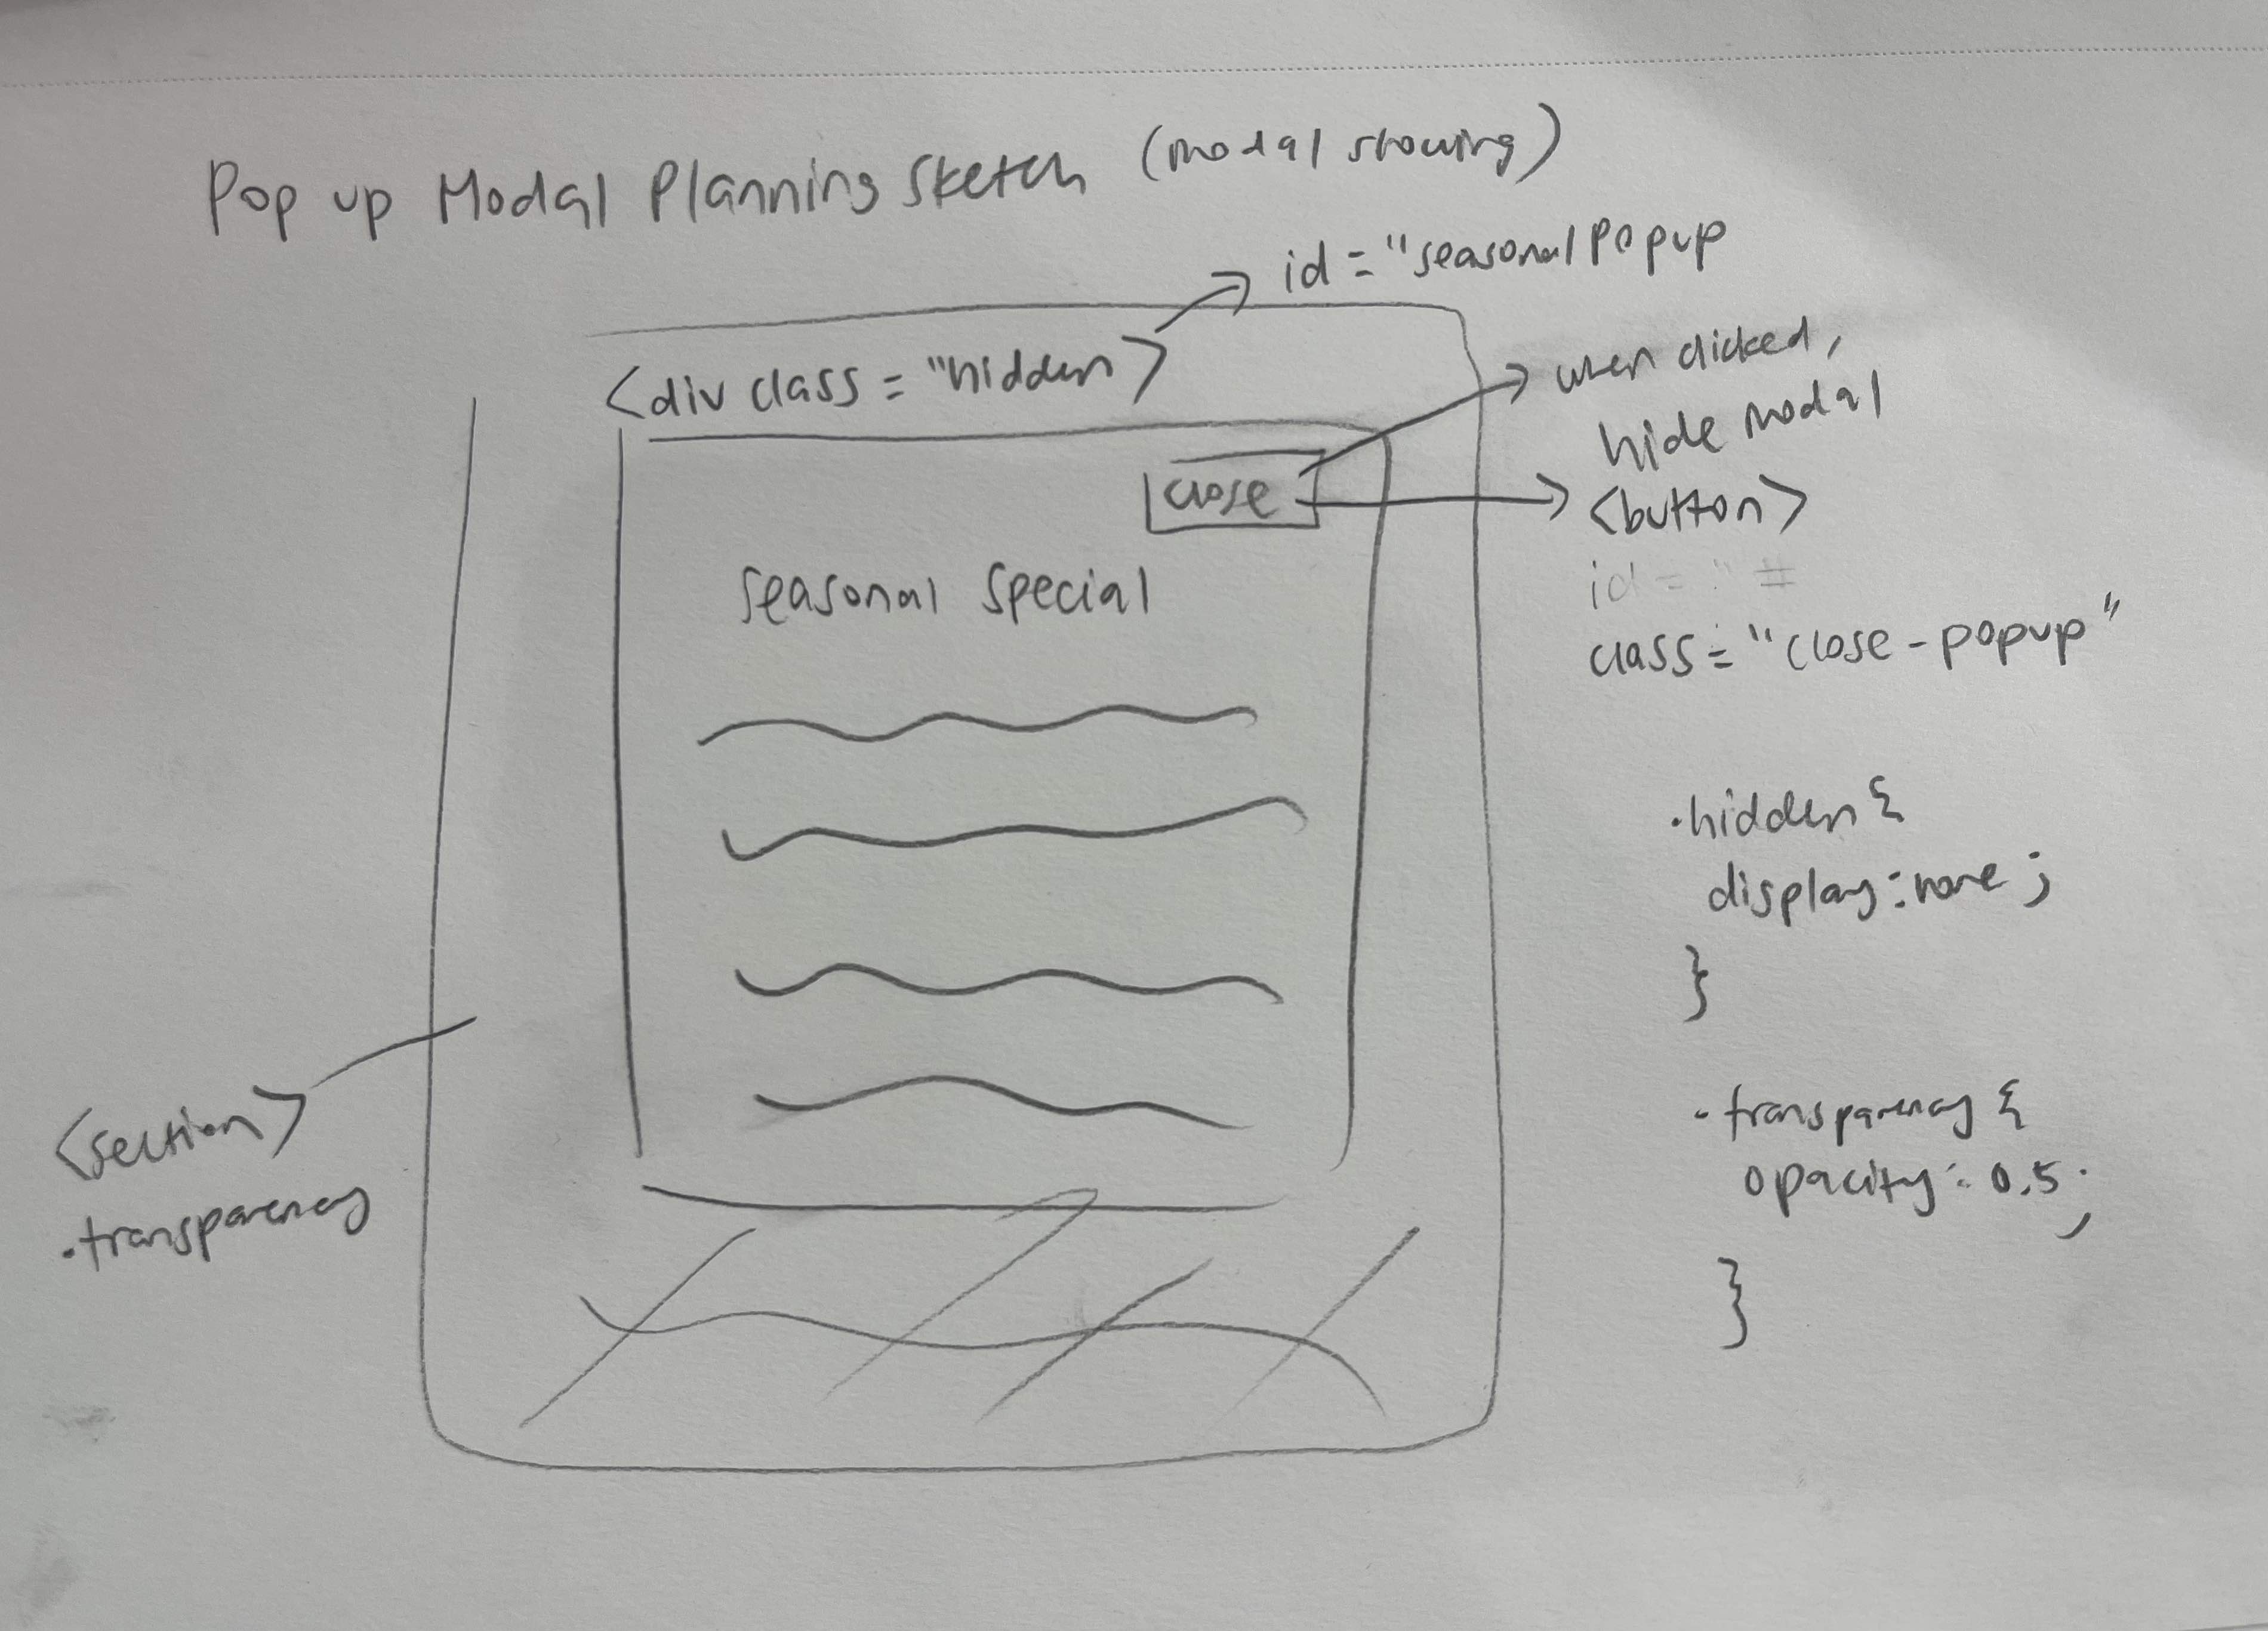 Pop up Modal Planning Sketch (modal showing)
id = "seasonalPopup
<div class = "hidden>
when clicked,
hide modal
close
<button>
id = " #
class = "close-popup"
seasonal special
.hidden {
display: none;
}
<section>
.transparency
.transparency {
opacity: 0.5;
}